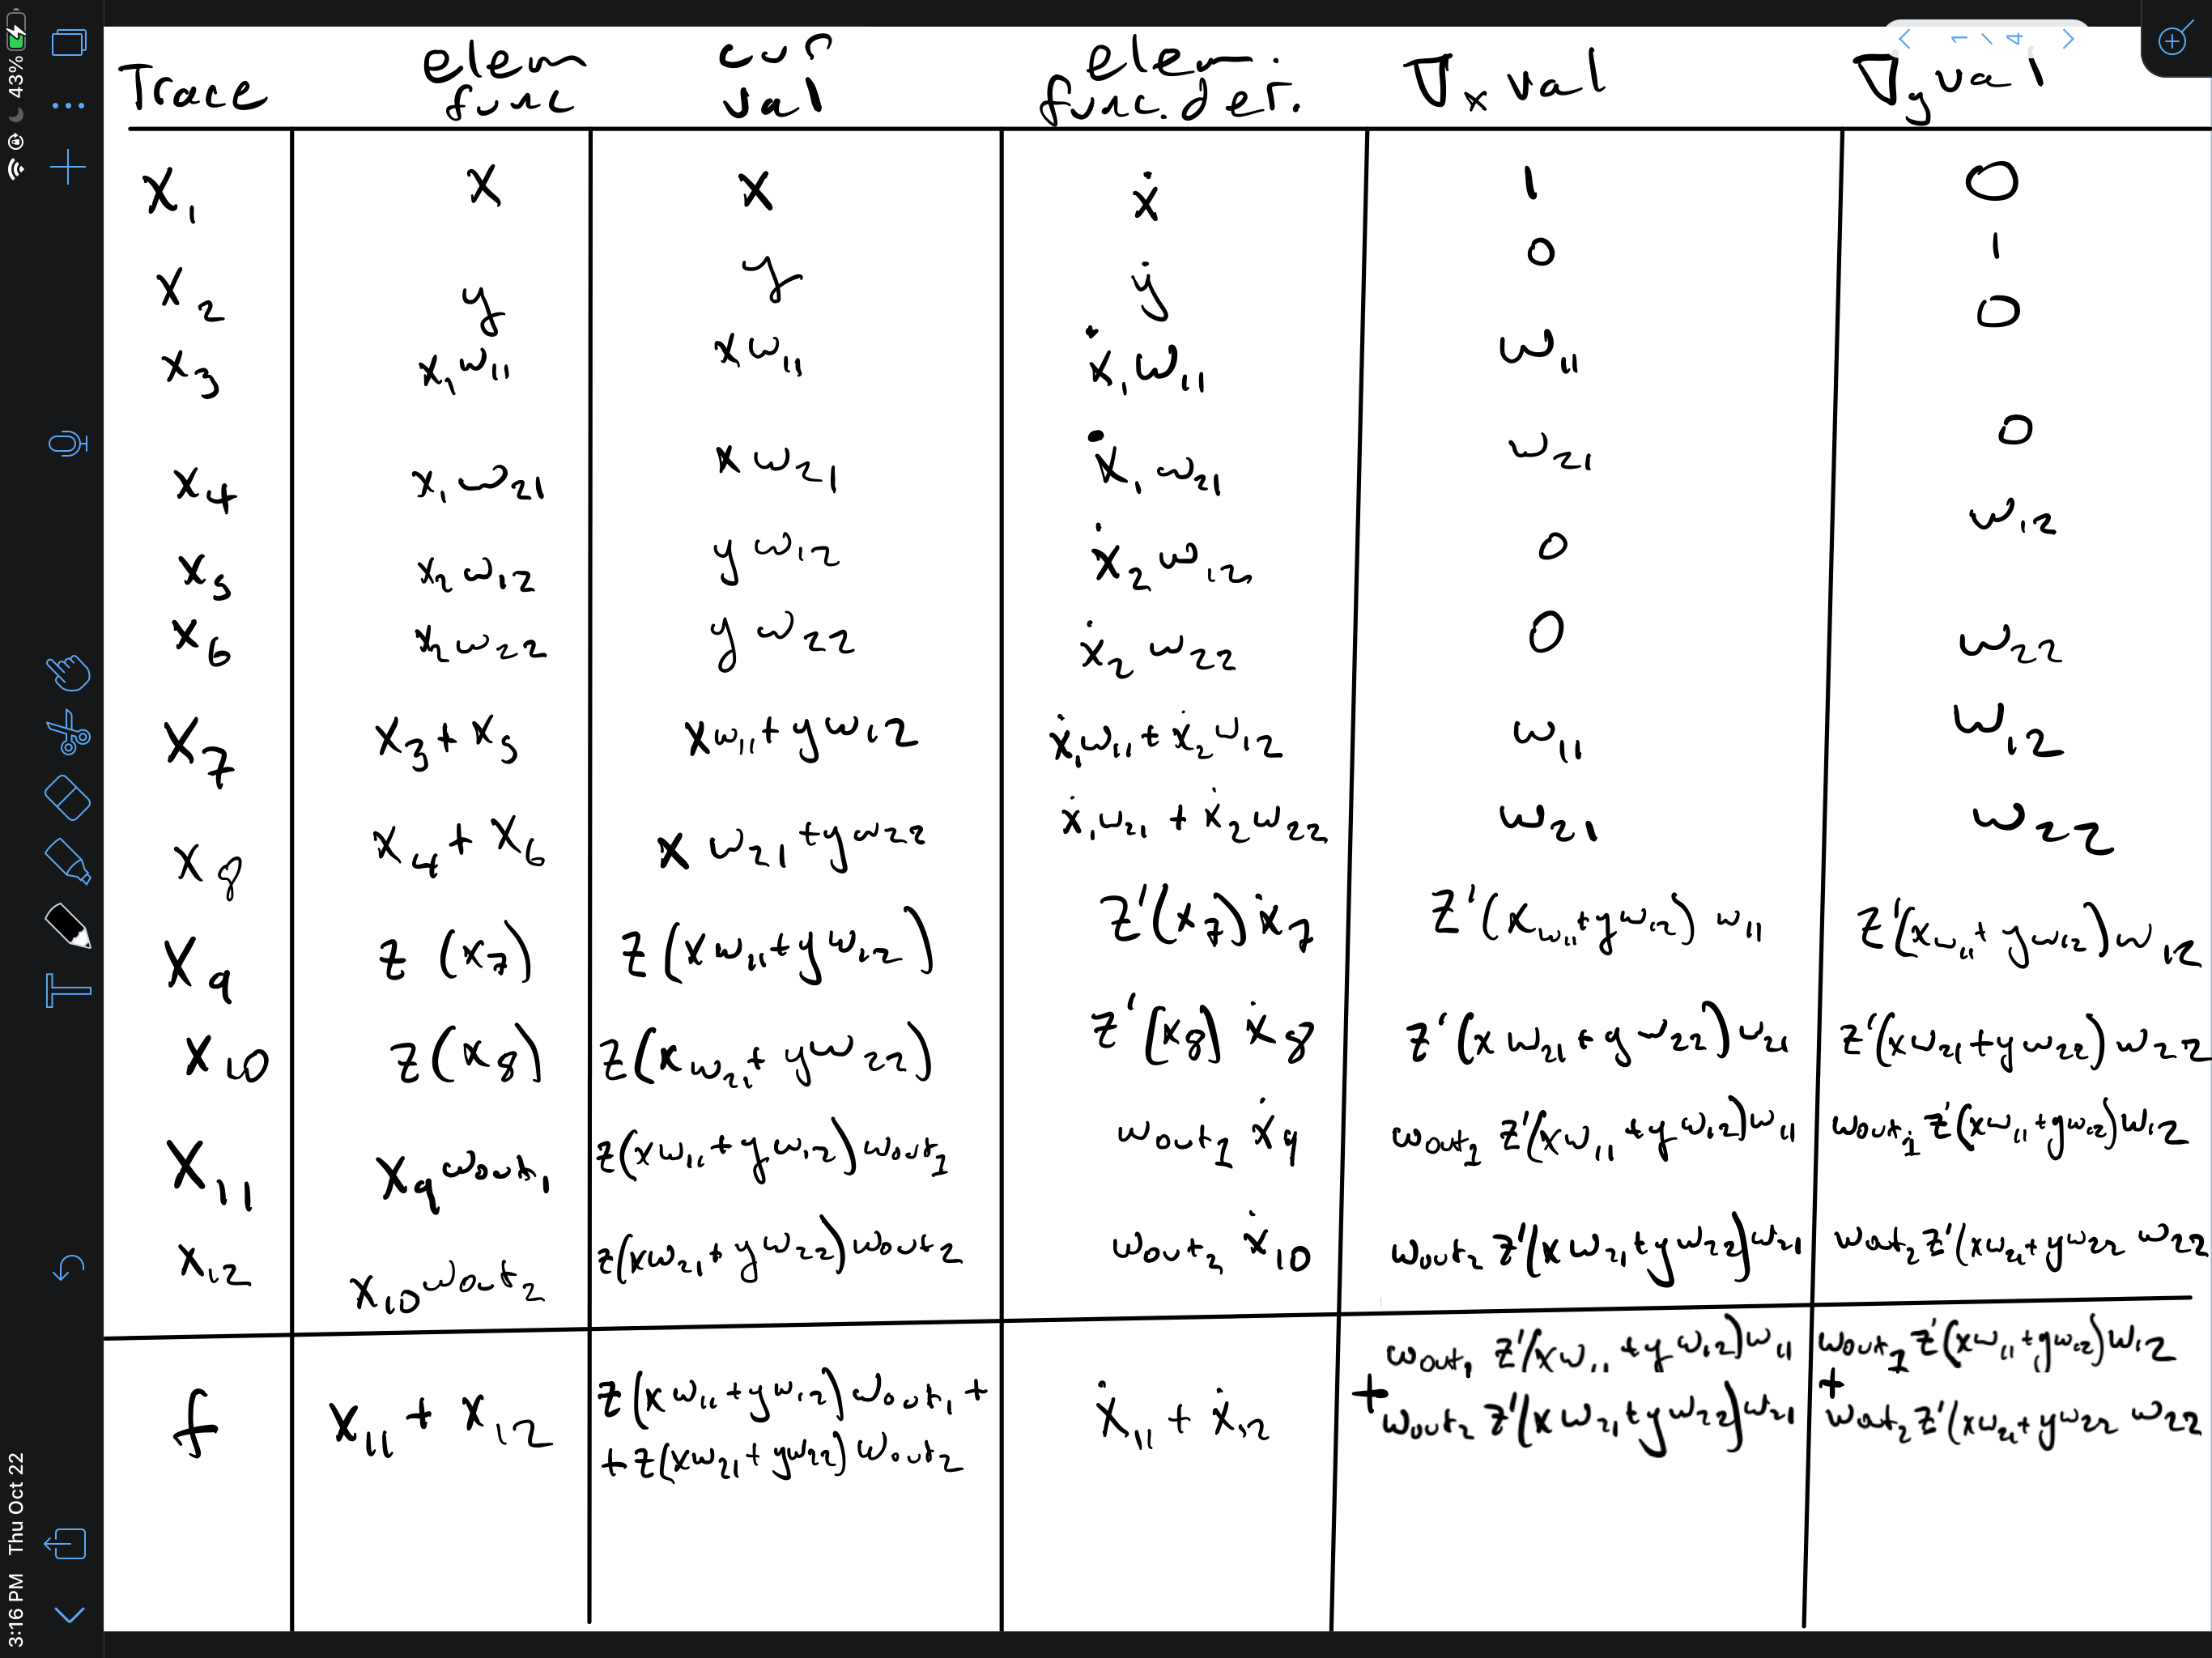 Trace | elem func | cur val | elem. func. der. | ∇ₓ val | ∇ᵧ val
x₁ | x | x | ẋ | 1 | 0
x₂ | y | y | ẏ | 0 | 1
x₃ | x₁w₁₁ | xw₁₁ | ẋ₁w₁₁ | w₁₁ | 0
x₄ | x₁w₂₁ | xw₂₁ | ẋ₁w₂₁ | w₂₁ | 0
x₅ | x₂w₁₂ | yw₁₂ | ẋ₂w₁₂ | 0 | w₁₂
x₆ | x₂w₂₂ | yw₂₂ | ẋ₂w₂₂ | 0 | w₂₂
x₇ | x₃ + x₅ | xw₁₁ + yw₁₂ | ẋ₁w₁₁ + ẋ₂w₁₂ | w₁₁ | w₁₂
x₈ | x₄ + x₆ | xw₂₁ + yw₂₂ | ẋ₁w₂₁ + ẋ₂w₂₂ | w₂₁ | w₂₂
x₉ | z(x₇) | z(xw₁₁ + yw₁₂) | z'(x₇)ẋ₇ | z'(xw₁₁ + yw₁₂)w₁₁ | z'(xw₁₁ + yw₁₂)w₁₂
x₁₀ | z(x₈) | z(xw₂₁ + yw₂₂) | z'(x₈)ẋ₈ | z'(xw₂₁ + yw₂₂)w₂₁ | z'(xw₂₁ + yw₂₂)w₂₂
x₁₁ | x₉wout₁ | z(xw₁₁ + yw₁₂)wout₁ | wout₁ẋ₉ | wout₁z'(xw₁₁ + yw₁₂)w₁₁ | wout₁z'(xw₁₁ + yw₁₂)w₁₂
x₁₂ | x₁₀wout₂ | z(xw₂₁ + yw₂₂)wout₂ | wout₂ẋ₁₀ | wout₂z'(xw₂₁ + yw₂₂)w₂₁ | wout₂z'(xw₂₁ + yw₂₂ w₂₂
f | x₁₁ + x₁₂ | z(xw₁₁ + yw₁₂)wout₁ + + z(xw₂₁ + yw₂₂)wout₂ | ẋ₁₁ + ẋ₁₂ | wout₁z'(xw₁₁ + yw₁₂)w₁₁ + wout₂z'(xw₂₁ + yw₂₂)w₂₁ | wout₁z'(xw₁₁ + yw₁₂)w₁₂ + wout₂z'(xw₂₁ + yw₂₂ w₂₂
1 / 4
43%
3:16 PM Thu Oct 22
T